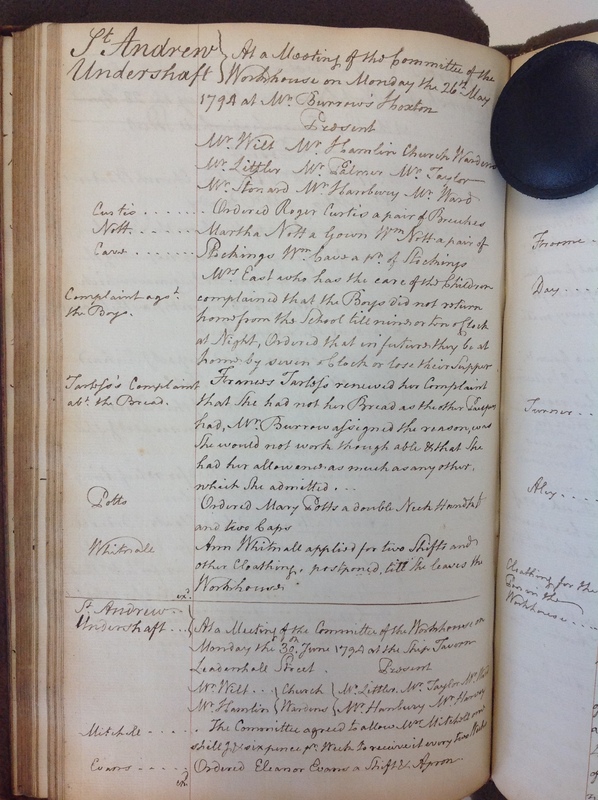 St. Andrew Undershaft } At a Meeting of the Committee of the
Workhouse on Monday the 26th May
1794 at Mr. Burrows Hoxton
Present
Mr. Wilt Mr. Hamlin Church Wardens
Mr. Littler Mr. Palmer Mr. Taylor
Mr. Stonard Mr. Hanbury Mr. Ward
Curtis . . . . . . . Ordered Roger Curtis a pair of Breeches
Nott . . . . . . . Martha Nott a Gown Wm. Nott a pair of
Cave . . . . . . . Stockings Wm. Cave a pr. of Stockings
Mrs. East who has the care of the Children
Complaint agst. complained that the Boys did not return
the Boys. home from the School till nine or ten oClock
at Night, Ordered that in future they be at
home by seven oClock or lose their Supper
Complaint Frances renewed her Complaint
abt. the Bread. that she had not her Bread as the other
had, Mr. Burrow assigned the reason, was
She would not work though able & that She
had her allowance as much as any other,
which She admitted. . .
Potts Ordered Mary Potts a double Neck Handkf.
and two Caps
Whitnall Ann Whitnall applied for two Shifts and
other Cloathing, postponed till She leaves the
Workhouse
ex.
St. Andrew
Undershaft . . . { At a Meeting of the Committee of the Workhouse on
Monday the 30th June 1794 at the Ship Tavern
Leadenhall Street. Present
Mr. Wilt . . { Church { Mr. Littler Mr. Taylor
Mr. Hamlin { Wardens { Mr. Hanbury Mr. Harvey
Mitchell . . . . . . The Committee agreed to allow Mrs. Mitchell one
shillg. & sixpence pr. Week to receive it every two Weeks
Evans . . . . . Ordered Eleanor Evans a Shift & Apron.
ex.
Froome .
Day . . .
Turner . .
Aley . . . .
Cloathing for the
on the
Workhouse . . .